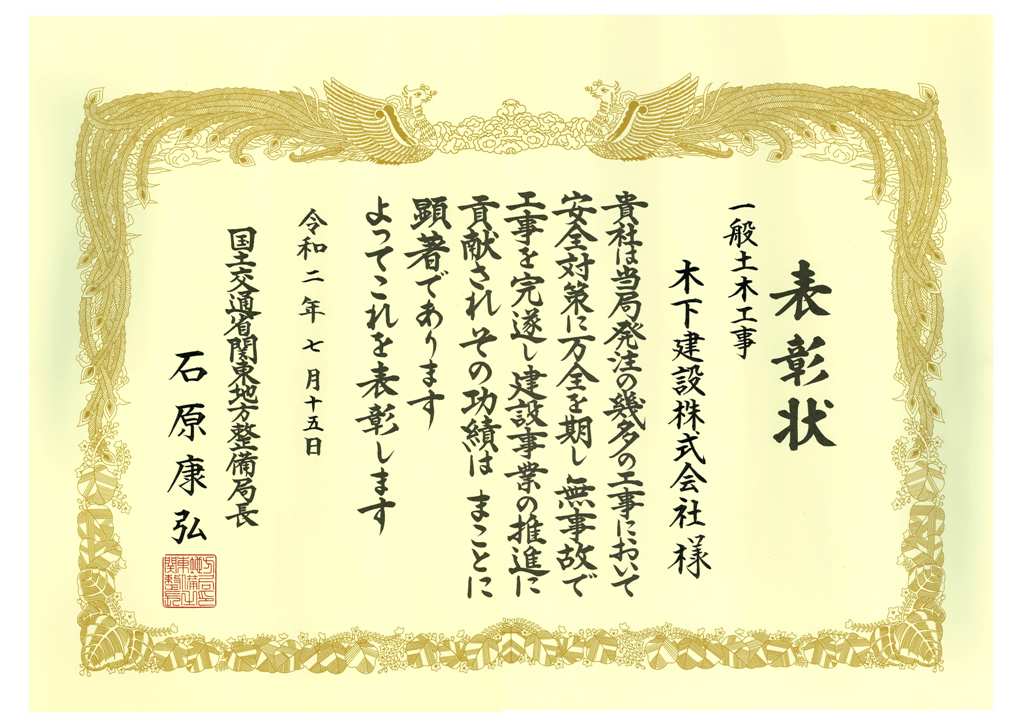 表彰状
一般土木工事
木下建設株式会社様
貴社は当局発注の幾多の工事において
安全対策に万全を期し無事故で
工事を完遂し建設事業の推進に
貢献されその功績は まことに
顕著であります
よってこれを表彰します
令和二年七月十五日
国土交通省関東地方整備局長
石原康弘